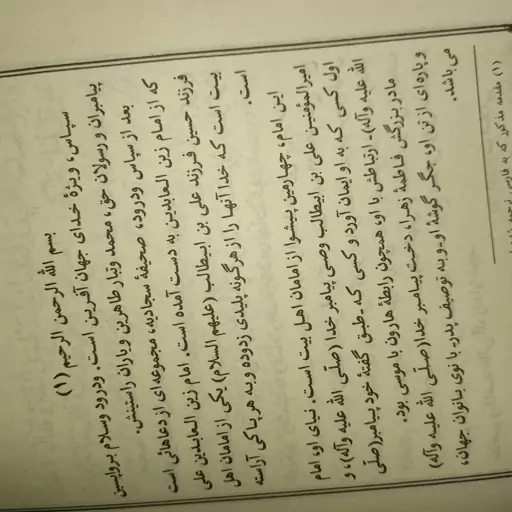 بسم الله الرحمن الرحیم (۱)
سپاس، ویژهٔ خدای جهان آفرین است. ودرود وسلام برواپسین
پیامبران و رسولان حق، محمد وتبار طاهرین ویاران راستینش.
بعد از سپاس ودرود، صحیفهٔ سجادیه، مجموعه‌ای ازدعاهائی است
که از امام زین العابدین به دست آمده است. امام زین العابدین علی
فرزند حسین فرزند علی بن ابیطالب (علیهم السلام) یکی از امامان اهل
بیت است که خدا آنها را ازهرگونه پلیدی زدوده وبه هرپاکی آراسته
است.
این امام، چهارمین پیشوا از امامان اهل بیت است. نیای او، امام
امیرالمؤمنین علی بن ابیطالب وصی پیامبر خدا (صلّی الله علیه وآله)، و
اول کسی که به او ایمان آورد و کسی که ـ طبق گفتهٔ خود پیامبر(صلّی
الله علیه وآله)ـ ارتباطش با او، همچون رابطهٔ هارون با موسی بود.
مادر بزرگش فاطمهٔ زهرا، دخت پیامبر خدا(صلّی الله علیه وآله)
وپاره‌ای از تن او، جگر گوشهٔ او ـ وبه توصیف پدرـ بانوی بانوان جهان،
می باشد.
(۱) مقدمه مذکور که به فارسی